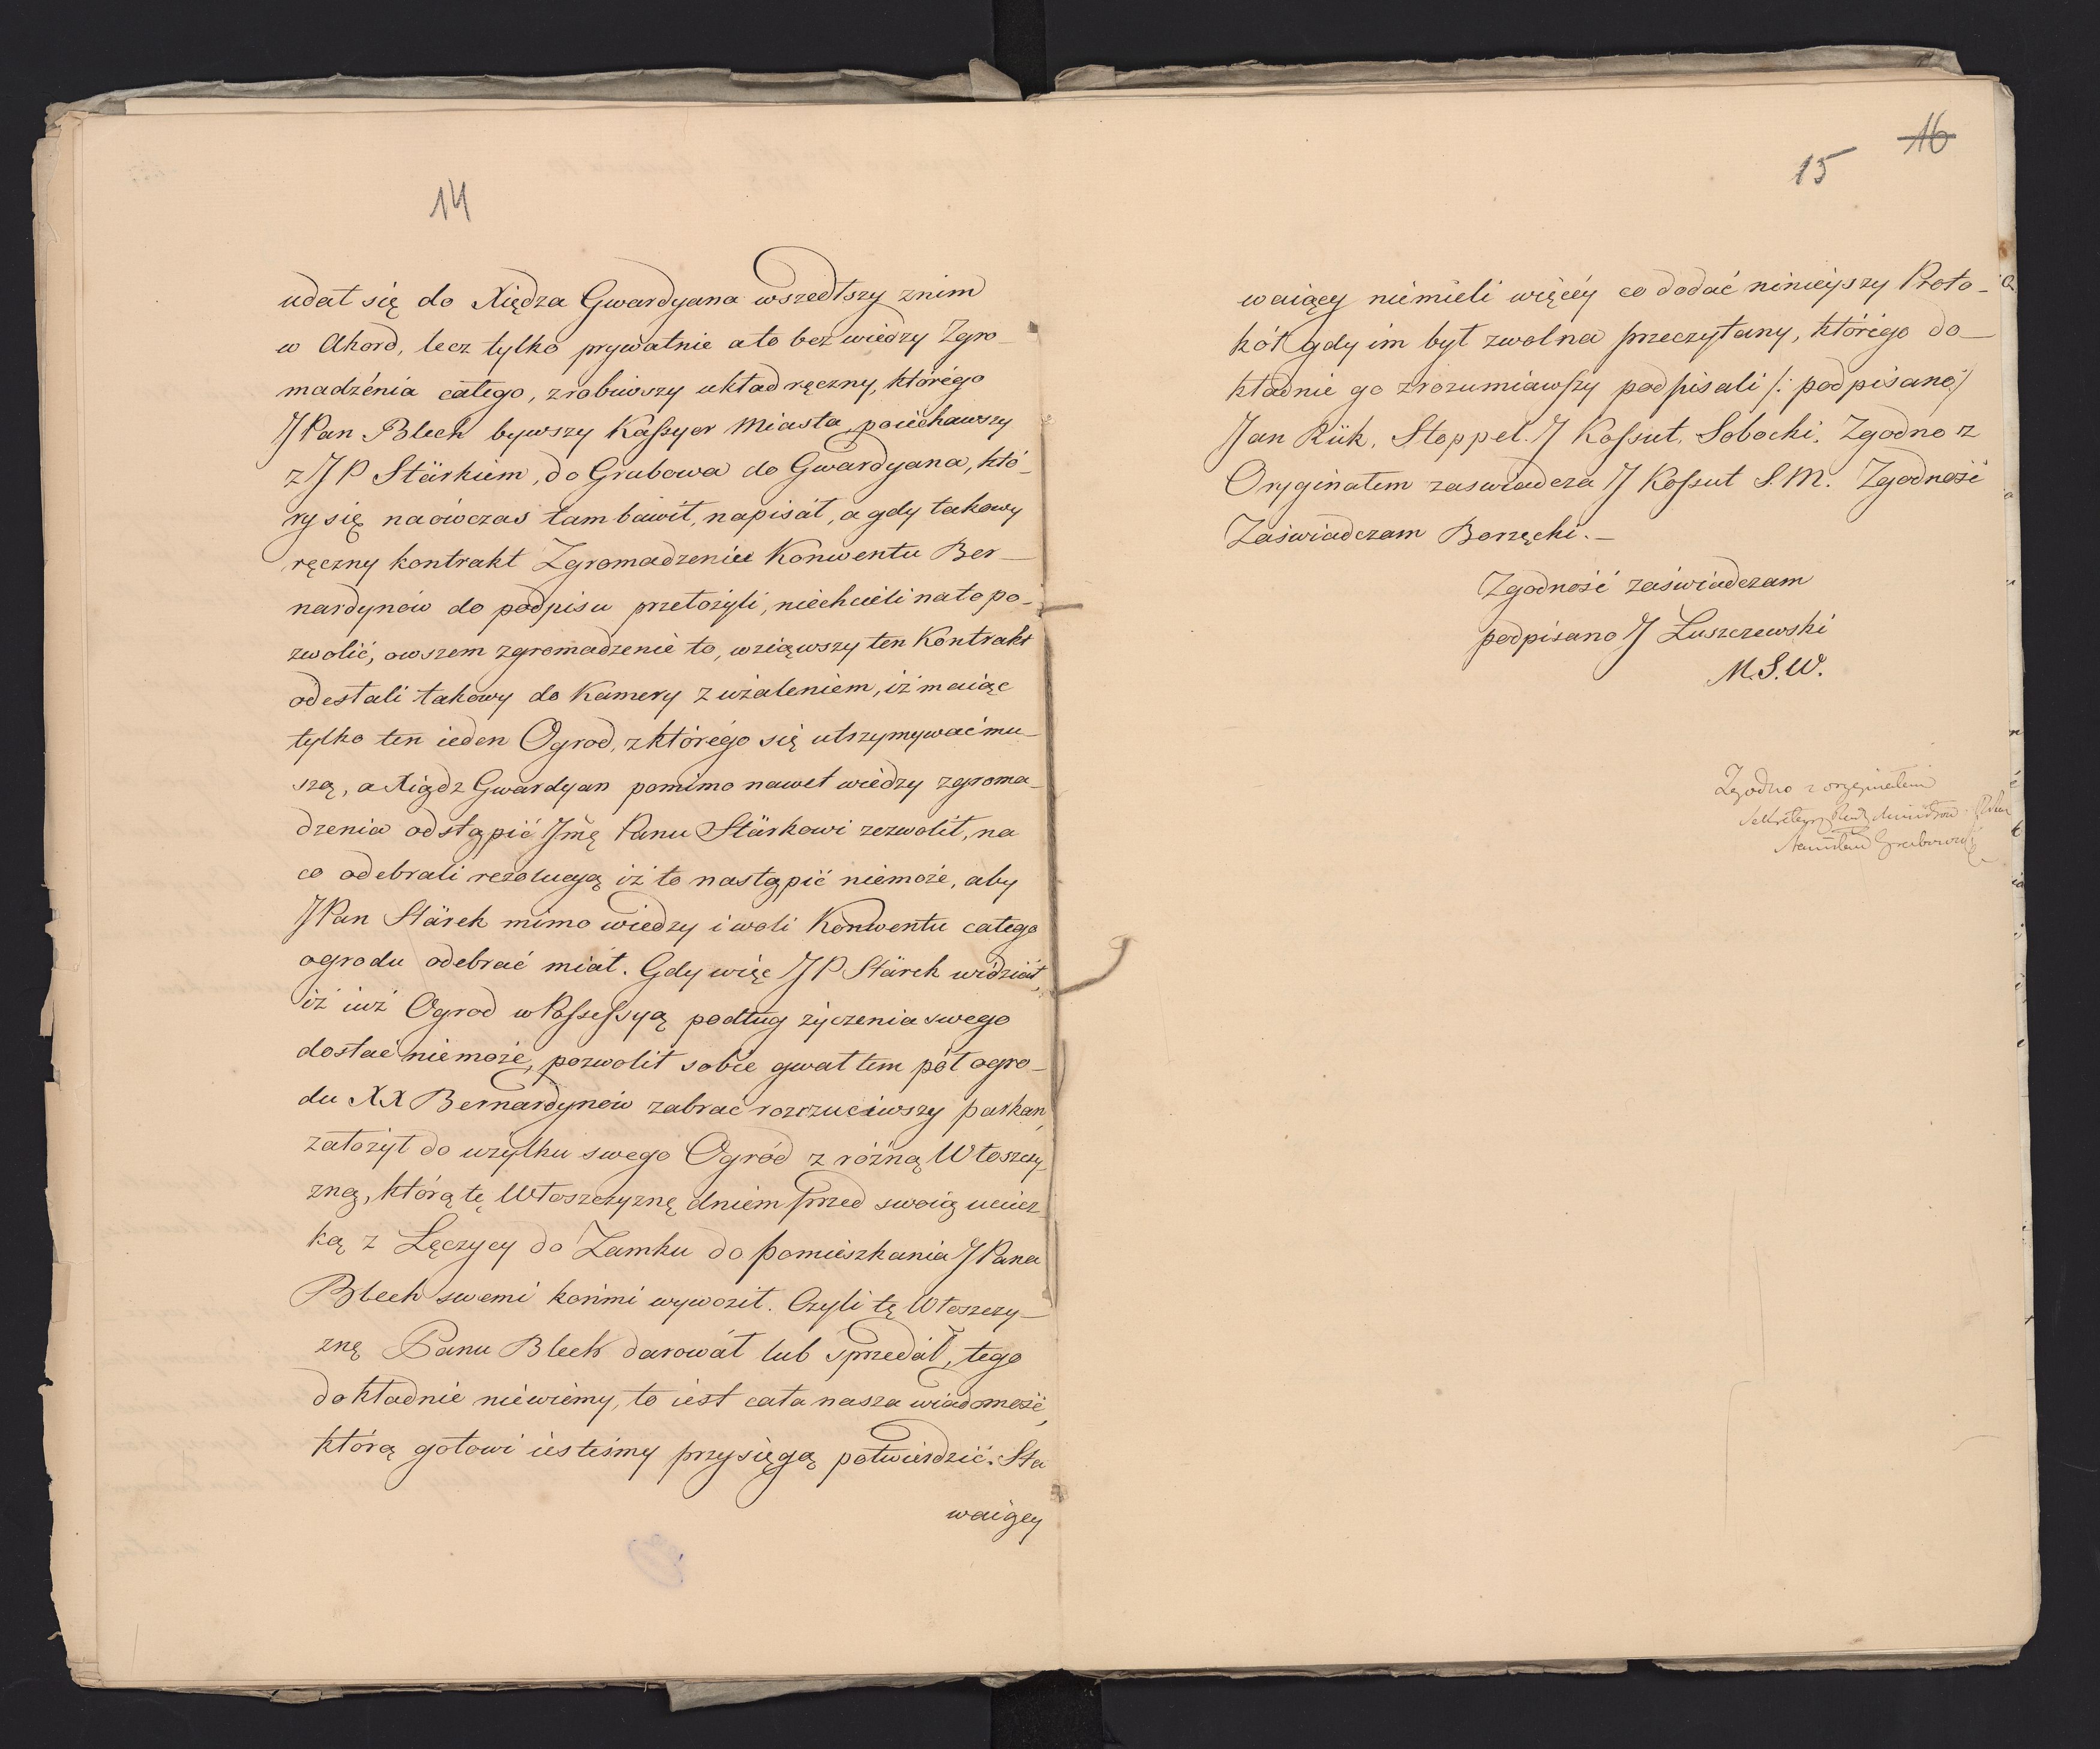 14
udał się do Xiędza Gwardyana wszedłszy znim
w Akord, lecz tylko prywatnie a to bez wiedzy Zgro-
madzénia całego, zrobiwszy układ ręczny, którégo
JPan Blech bywszy Kaſsyer Miasta, poiéchawszy
z JP Stärkiem, do Grabowa do Gwardyana, któ-
ry się naówczas tam bawił, napisáł, a gdy takowy
ręczny kontrakt Zgromadzeniu Konwentu Ber-
nardynów do podpisu przełożyli, niechcieli na to po-
zwolić, owszem zgromadzenié to, wziąwszy ten Kontrakt
odesłali takowy do Kamery z użaleniem, iż maiąc
tylko ten ieden Ogrod, z którégo się utrzymywać mu-
szą, a Xiądz Gwardyan pomimo nawet wiédzy zgroma-
dzenia odstąpić Jmę Panu Stärkowi zezwolił, na
co odebrali rezolucyą iż to nastąpić niemoże, aby
JPan Stärck mimo wiedzy i woli Konwentu całego
ogrodu odebrać miał. Gdy więc JP Stärck widziáł,
iż iuż Ogrod w Poſseſsyą podług życzenia swego
dostać niemożé, pozwolił sobie gwałtem pół ogro-
du XX Bernardynów zabrać rozrzuciwszy parkan,
założył do użytku swego Ogród z różną Włoszczy-
zną, którą tę Włoszczyznę dniem przed swoią uciecz-
ką z Łęczycy do Zamku do pomieszkania JPana
Blech swemi końmi wywoził. Czyli tę Włoszczy-
znę Panu Blech darowáł lub sprzedáł, tego
dokładnie niéwiémy, to iest cała nasza wiadomość,
którą gotowi iesteśmy przysięgą potwierdzić. Sta
waiący
16
15
waiący niémieli więcéy co dodać ninieyszy Proto-
kół gdy im był zwolna przeczytany, którégo do-
kładnie go zrozumiawſzy podpisali /: podpisano:/
Jan Rük. Stoppel. J Koſsut. Sobocki. Zgodno z
Oryginałem zaswiadcza J Koſsut S.M. Zgodność
Zaświadczam Borzęcki.—
Zgodność zaświadczam
podpisano J Łuszczewski
M.S.W.
Zgodno z oryginałem
Sekretarz Rady Ministrow
Stanisław Grabowski